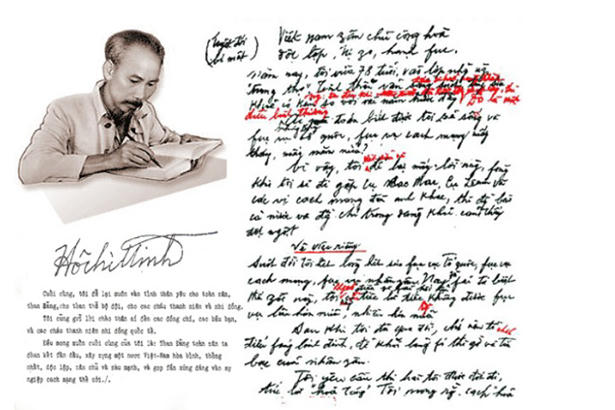 HồChíMinh
Cuối cùng, tôi để lại muôn vàn tình thân yêu cho toàn dân,
toàn Đảng, cho toàn thể bộ đội, cho các cháu thanh niên và nhi đồng.
Tôi cũng gửi lời chào thân ái đến các đồng chí, các bầu bạn,
và các cháu thanh niên nhi đồng quốc tế.
Điều mong muốn cuối cùng của tôi là: Toàn Đảng toàn dân ta
đoàn kết phấn đấu, xây dựng một nước Việt-Nam hòa bình, thống
nhất, độc lập, dân chủ và giàu mạnh, và góp phần xứng đáng vào sự
nghiệp cách mạng thế giới./.
(Tuyệt đối
bí mật)
Việt nam zân chủ cộng hoà
độc lập, tự zo, hạnh fúc.
Năm nay, tôi vừa 78 tuổi, vào lớp những người
"trung thọ". Tinh thần
khoẻ có kém so với vài năm trước đây
điều bình thường
toàn biết được tôi còn sống và
fục vụ tổ quốc, fục vụ cách mạng mấy
tháng, mấy năm nữa?
Vì vậy, tôi để lại mấy lời này, fòng
khi tôi sẽ đi gặp cụ Các Mác, cụ Lênin và
các vị cách mạng đàn anh khác, thì đồng bào
cả nước và đồng chí trong đảng khỏi cảm thấy
đột ngột
Về việc riêng
Suốt đời tôi hết lòng hết sức fục vụ tổ quốc, fục vụ
cách mạng, fục vụ nhân dân. Nay fải từ biệt
thế giới này, tôi tiếc là tiếc không được fục
vụ lâu hơn nữa, nhiều hơn nữa
Sau khi tôi đã qua đời, chớ nên tổ chức
điếu fúng linh đình, để khỏi lãng fí thì giờ và tiền
bạc của nhân zân.
Tôi yêu cầu thi hài tôi được đốt đi,